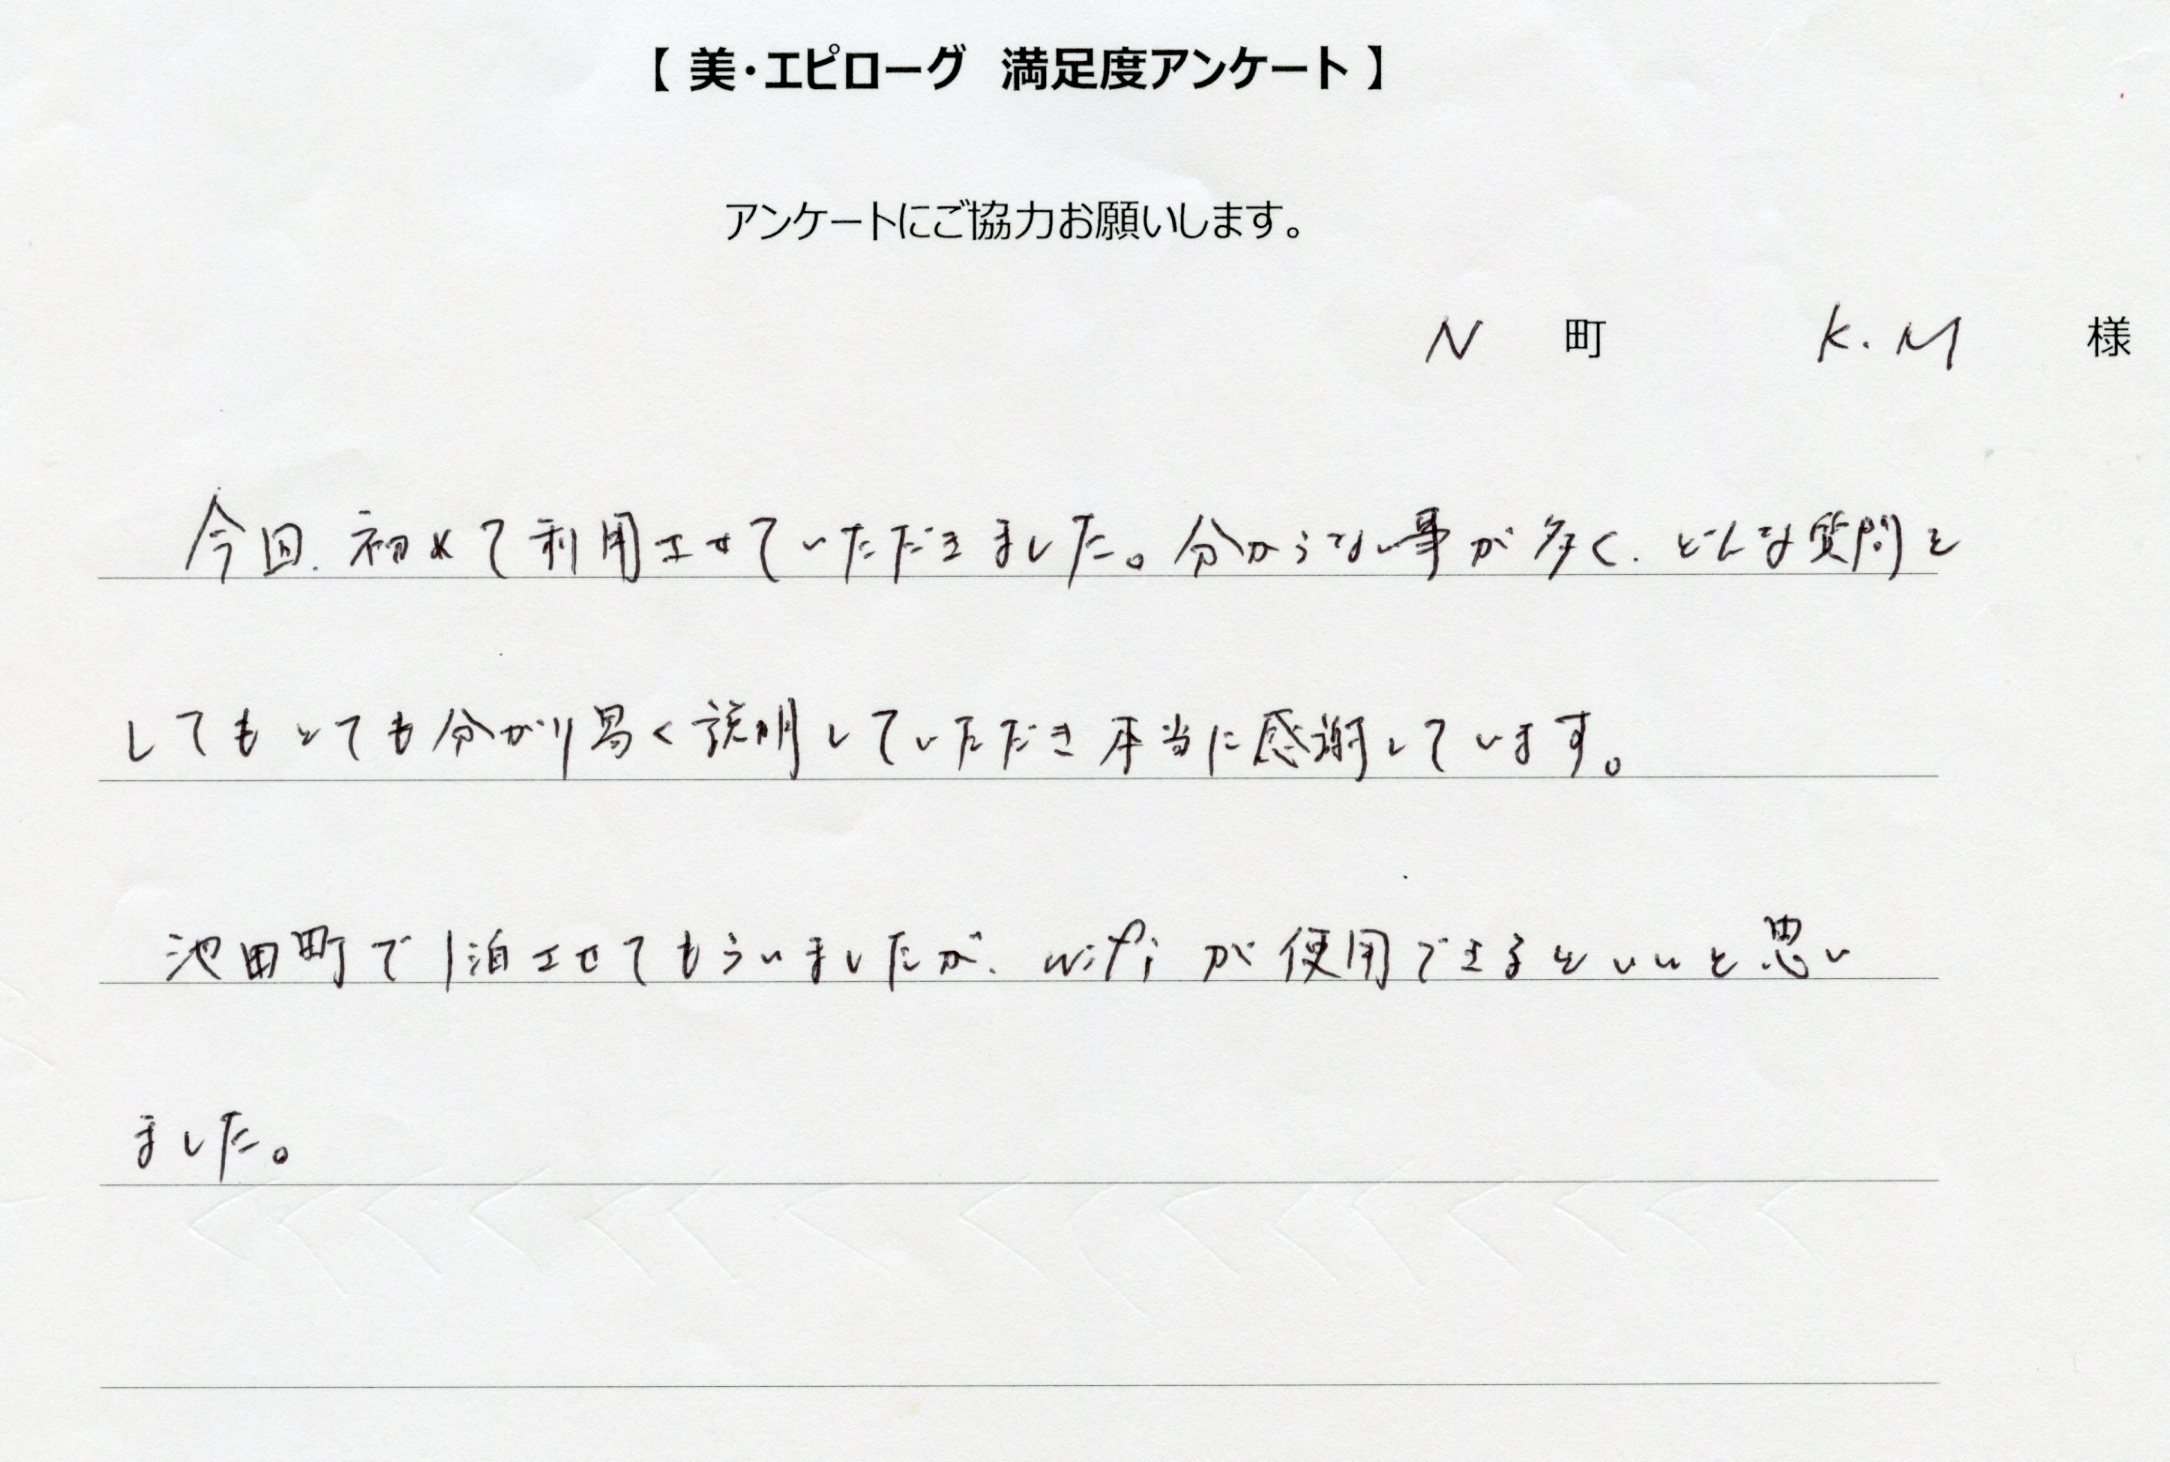 【 美・エピローグ 満足度アンケート 】
アンケートにご協力お願いします。
N 町 K.M 様
今回、初めて利用させていただきました。分からない事が多く、どんな質問を
してもとても分かり易く説明していただき本当に感謝しています。
池田町で1泊させてもらいましたが、wifiが使用できるといいと思い
ました。